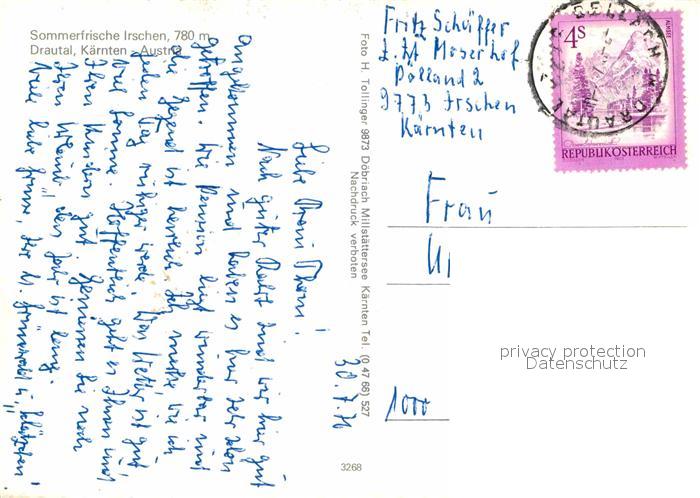 Sommerfrische Irschen, 780 m
Drautal, Kärnten - Austria
Liebe Frau Thomi!
Nach guter Fahrt sind wir hier gut
angekommen und haben es hier sehr schön
getroffen. Die Pension liegt wunderbar und
die Gegend ist herrlich. Ich merke wie ich
jeden Tag ruhiger werde. Das Wetter ist gut,
viel Sonne. Hoffentlich geht es Ihnen und
Ihren gut. Genießen Sie noch
Ihren den Jahr ist lang.
Viele liebe Grüße, Ihr
30.7.76
Foto H. Tollinger 9873 Döbriach Millstättersee Kärnten Tel. (0 47 68) 527
Nachdruck verboten
3268
Fritz Schäffer
z. Zt Moserhof
Pölland 2
9773 Irschen
Kärnten
4S
REPUBLIK ÖSTERREICH
DELLACH
DRAUTAL
Frau
1000
privacy protection
Datenschutz